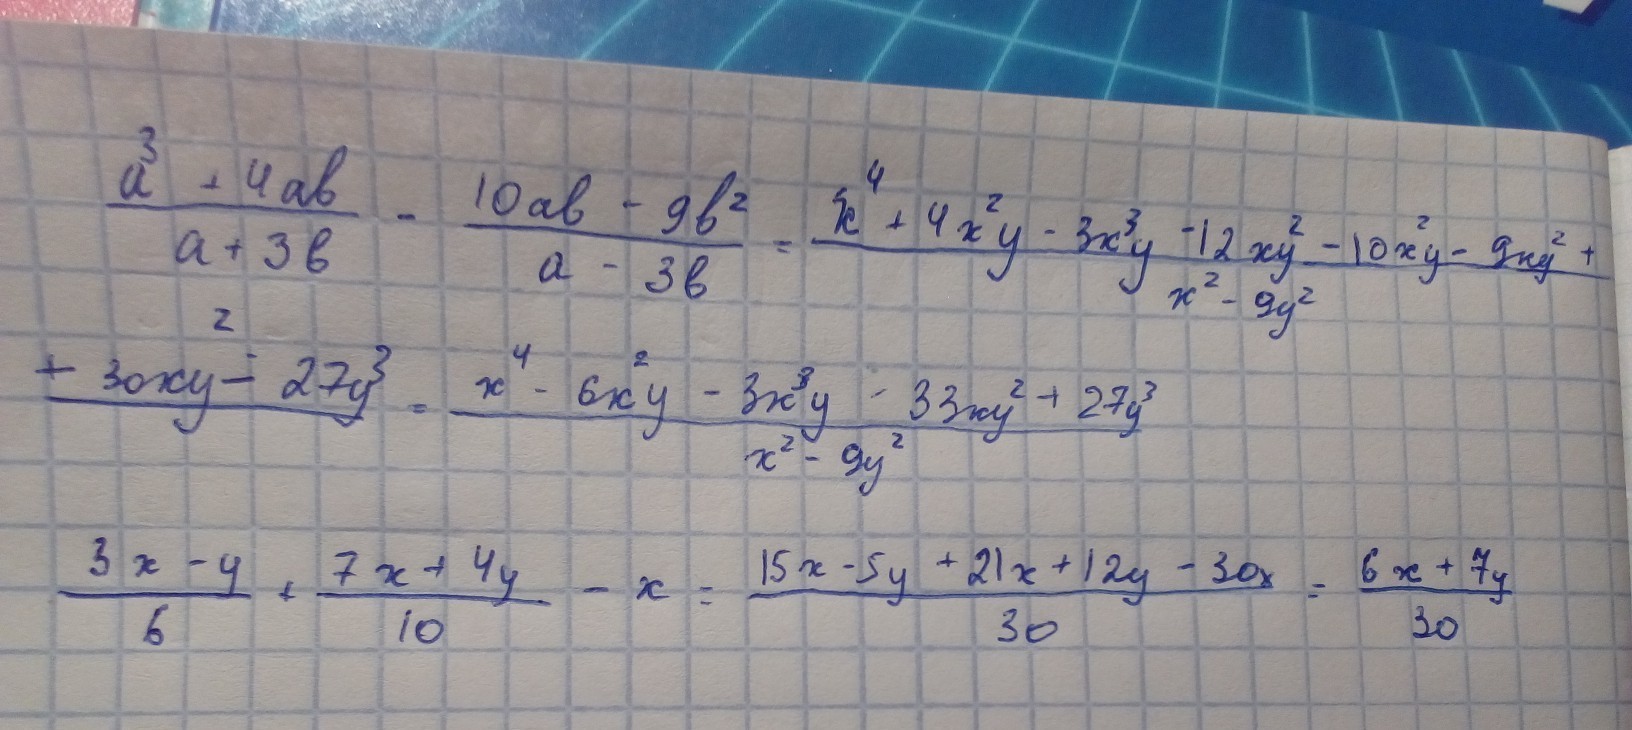 a³ + 4ab / a + 3b - 10ab - 9b² / a - 3b = x⁴ + 4x²y - 3x³y - 12xy² - 10x²y - 9xy² + / x² - 9y²
+ 30xy² - 27y³ = x⁴ - 6x²y - 3x³y - 33xy² + 27y³ / x² - 9y²
3x - y / 6 + 7x + 4y / 10 - x = 15x - 5y + 21x + 12y - 30x / 30 = 6x + 7y / 30